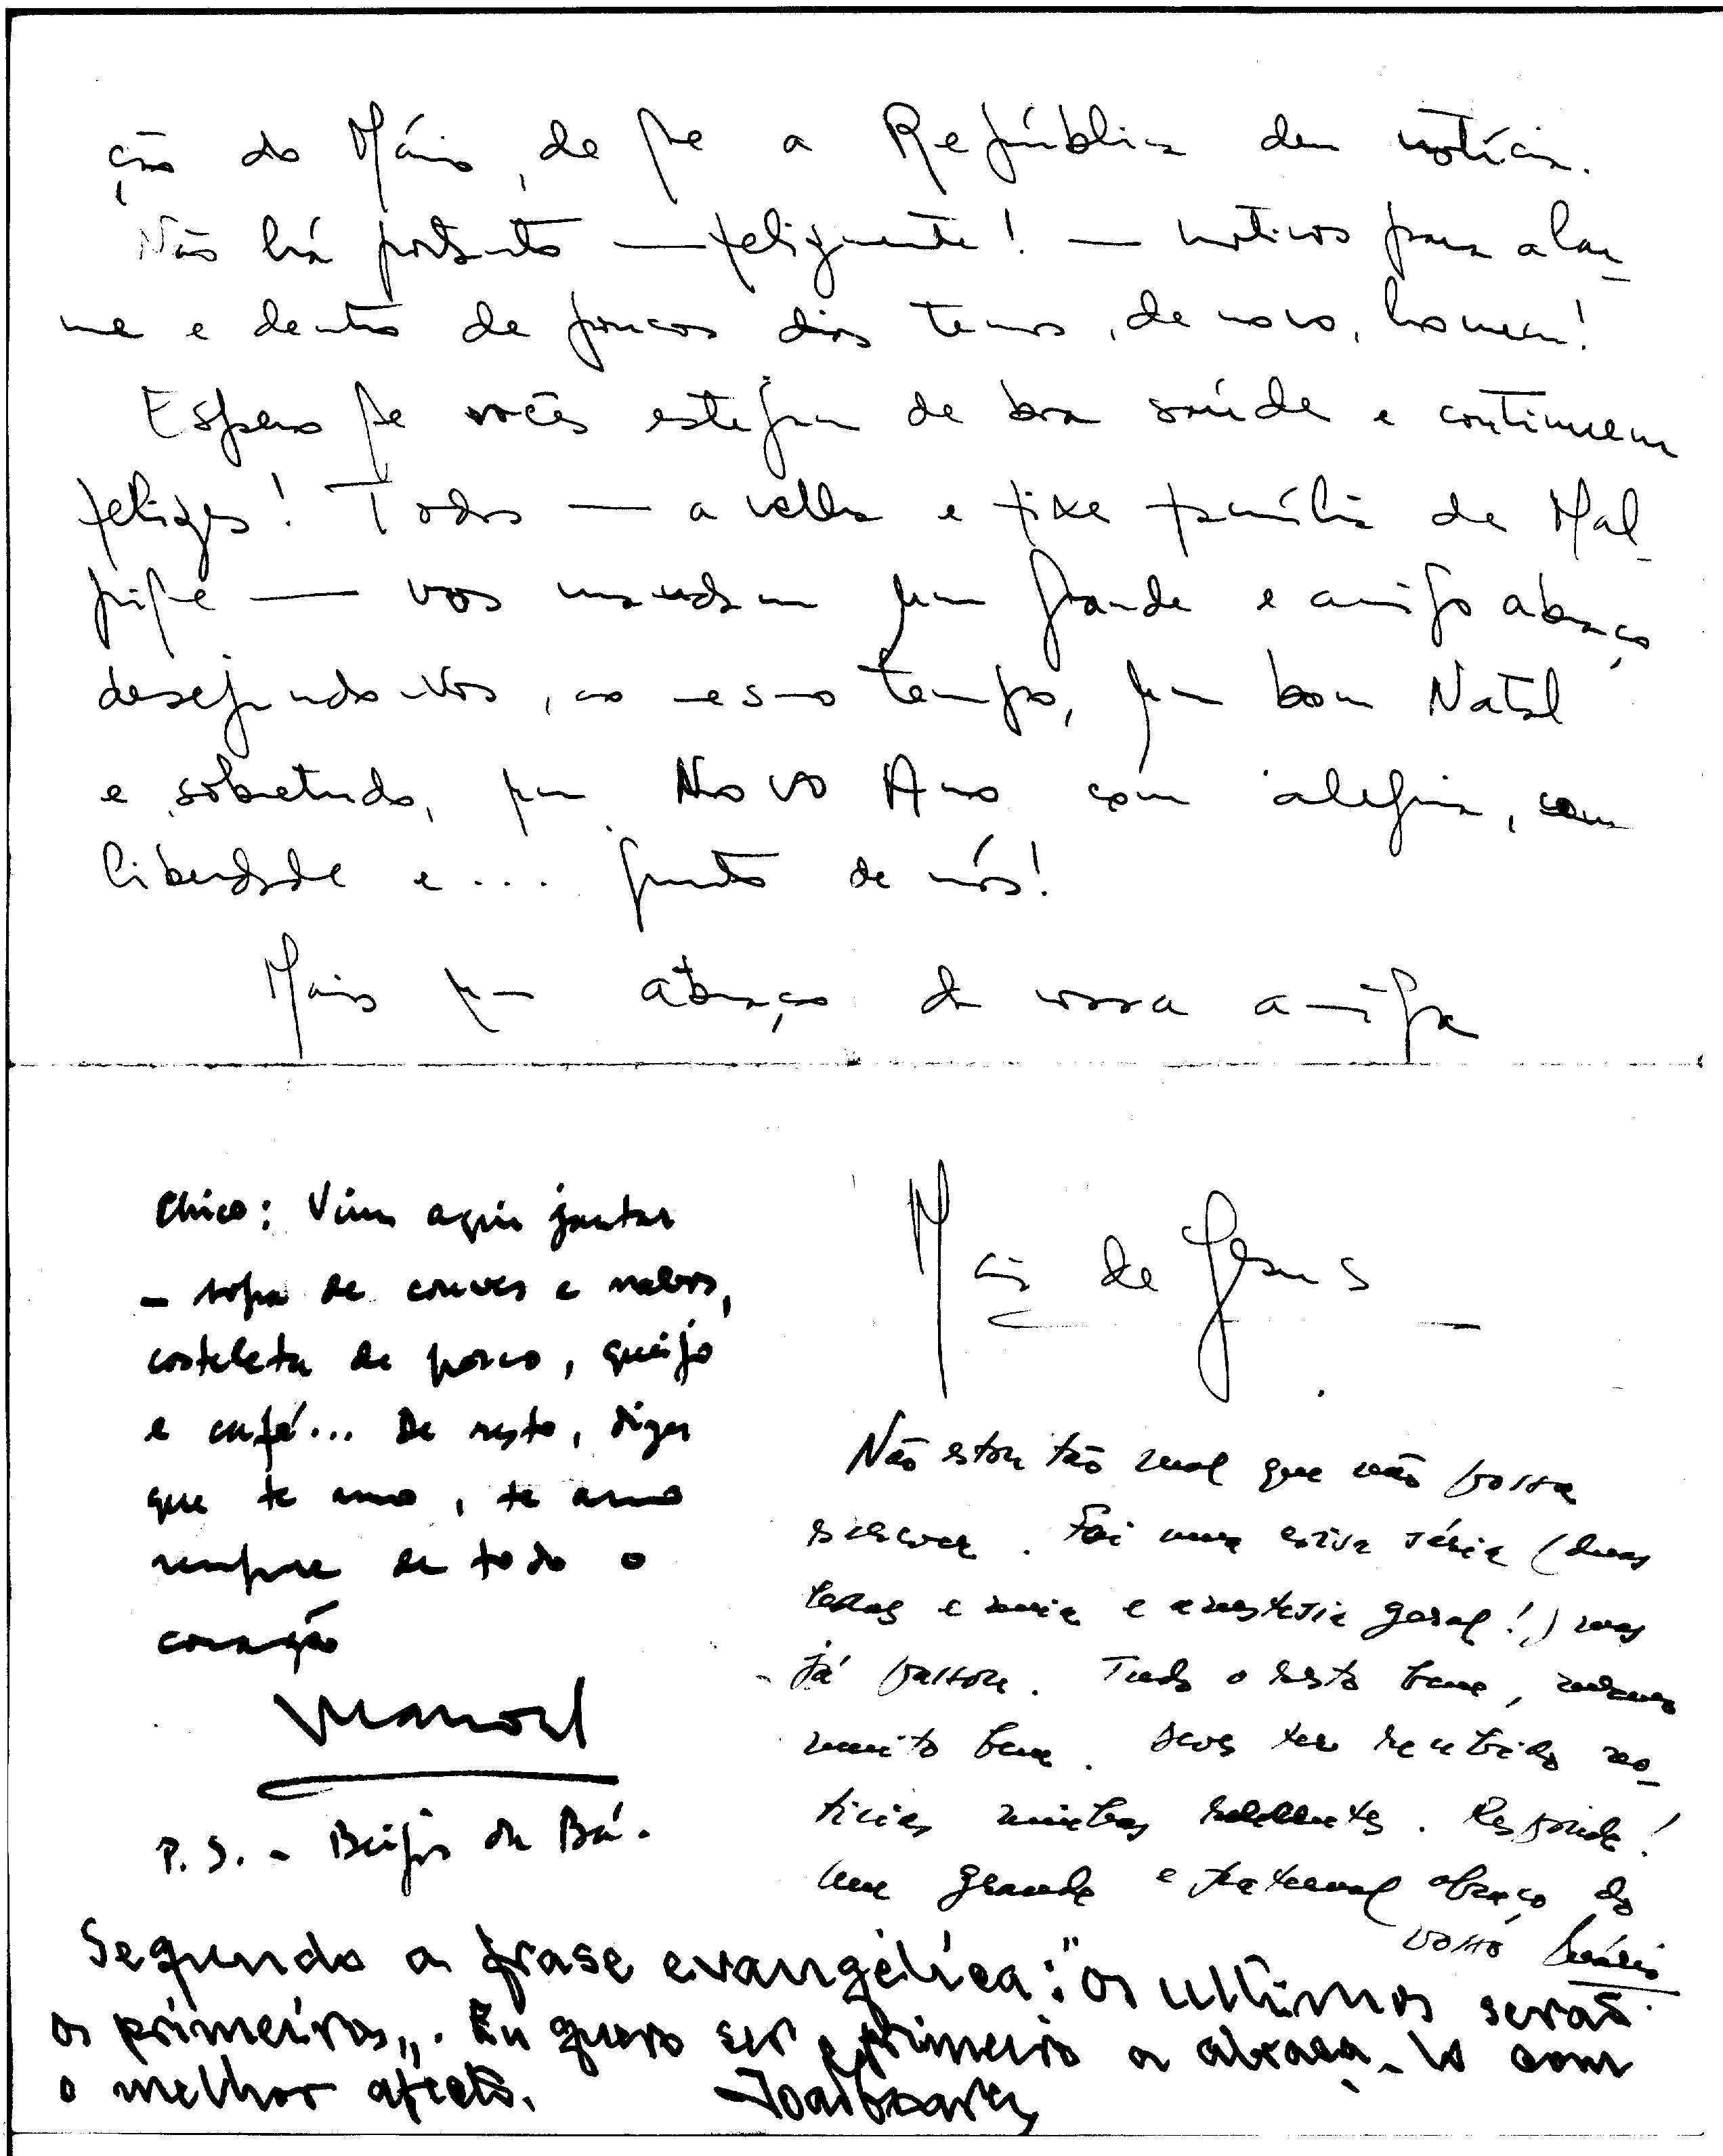 ção do Mário, de que a República deu notícia.
Não há portanto — felizmente! — motivos para alar-
me e dentro de poucos dias temos, de novo, homem!
Espero que vocês estejam de boa saúde e continuem
felizes! Todos — a velha e fixe família de Mal-
pique — vos mandam um grande e amigo abraço
desejando-vos, ao mesmo tempo, um bom Natal
e, sobretudo, um Novo Ano com alegria, com
liberdade e... junto de nós!
Mais um abraço da vossa amiga
Chico: Vim aqui jantar
— sopa de couves e nabos,
costeleta de porco, queijo
e café... De resto, dizer
que te amo, te amo
sempre de todo o
coração
Manoel
P. S. - Beijos da Bá.
de Jesus
Não estou tão mal que não possa
escrever. Foi uma coisa séria (duas
horas e meia e anestesia geral!) mas
já passou. Tudo o resto bem, mesmo
muito bem. Deves ter recebido no-
tícias minhas. Responde!
Um grande e fraternal abraço do
vosso Mário
Segundo a frase evangélica: "os ultimos serão
os primeiros". Eu quero ser o primeiro a abraça-lo com
o melhor afecto. João Soares